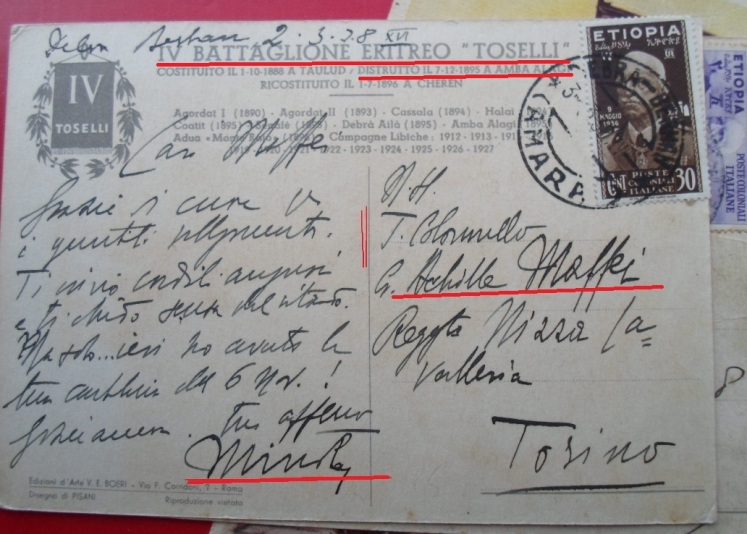 Debra Berhan 2.3.38 XVI
IV BATTAGLIONE ERITREO "TOSELLI"
COSTITUITO IL 1-10-1888 A TAULUD / DISTRUTTO IL 7-12-1895 A AMBA ALAGI
RICOSTITUITO IL 1-7-1896 A CHEREN
IV
TOSELLI
Agordat I (1890) - Agordat II (1893) - Cassala (1894) - Halai
Coatit (1895) - (1895) - Debrà Ailà (1895) - Amba Alagi
Adua Campagne Libiche: 1912 - 1913 -
1920 - 1921 - 1922 - 1923 - 1924 - 1925 - 1926 - 1927
Caro Maffei
Grazie di cuore
i graditi
Ti invio cordiali auguri
e ti chiedo scusa del ritardo.
Ma solo... ieri ho avuto la
tua cartolina del 6 Nov.!
Grazie ancora. Tuo affemo
N. H.
T. Colonnello
G. Achille Maffei
Reggto Nizza Ca=
valleria
Torino
Edizioni d'Arte V. E. BOERI - Via F. Corridoni, 7 - Roma
Disegno di PISANI
Riproduzione vietata
ETIOPIA
9
MAGGIO
1936
POSTE
COLONIALI
ITALIANE
CENT
30
DEBRA-BERHAN
(AMARA)
ETIOPIA
POSTE COLONIALI
ITALIANE
8